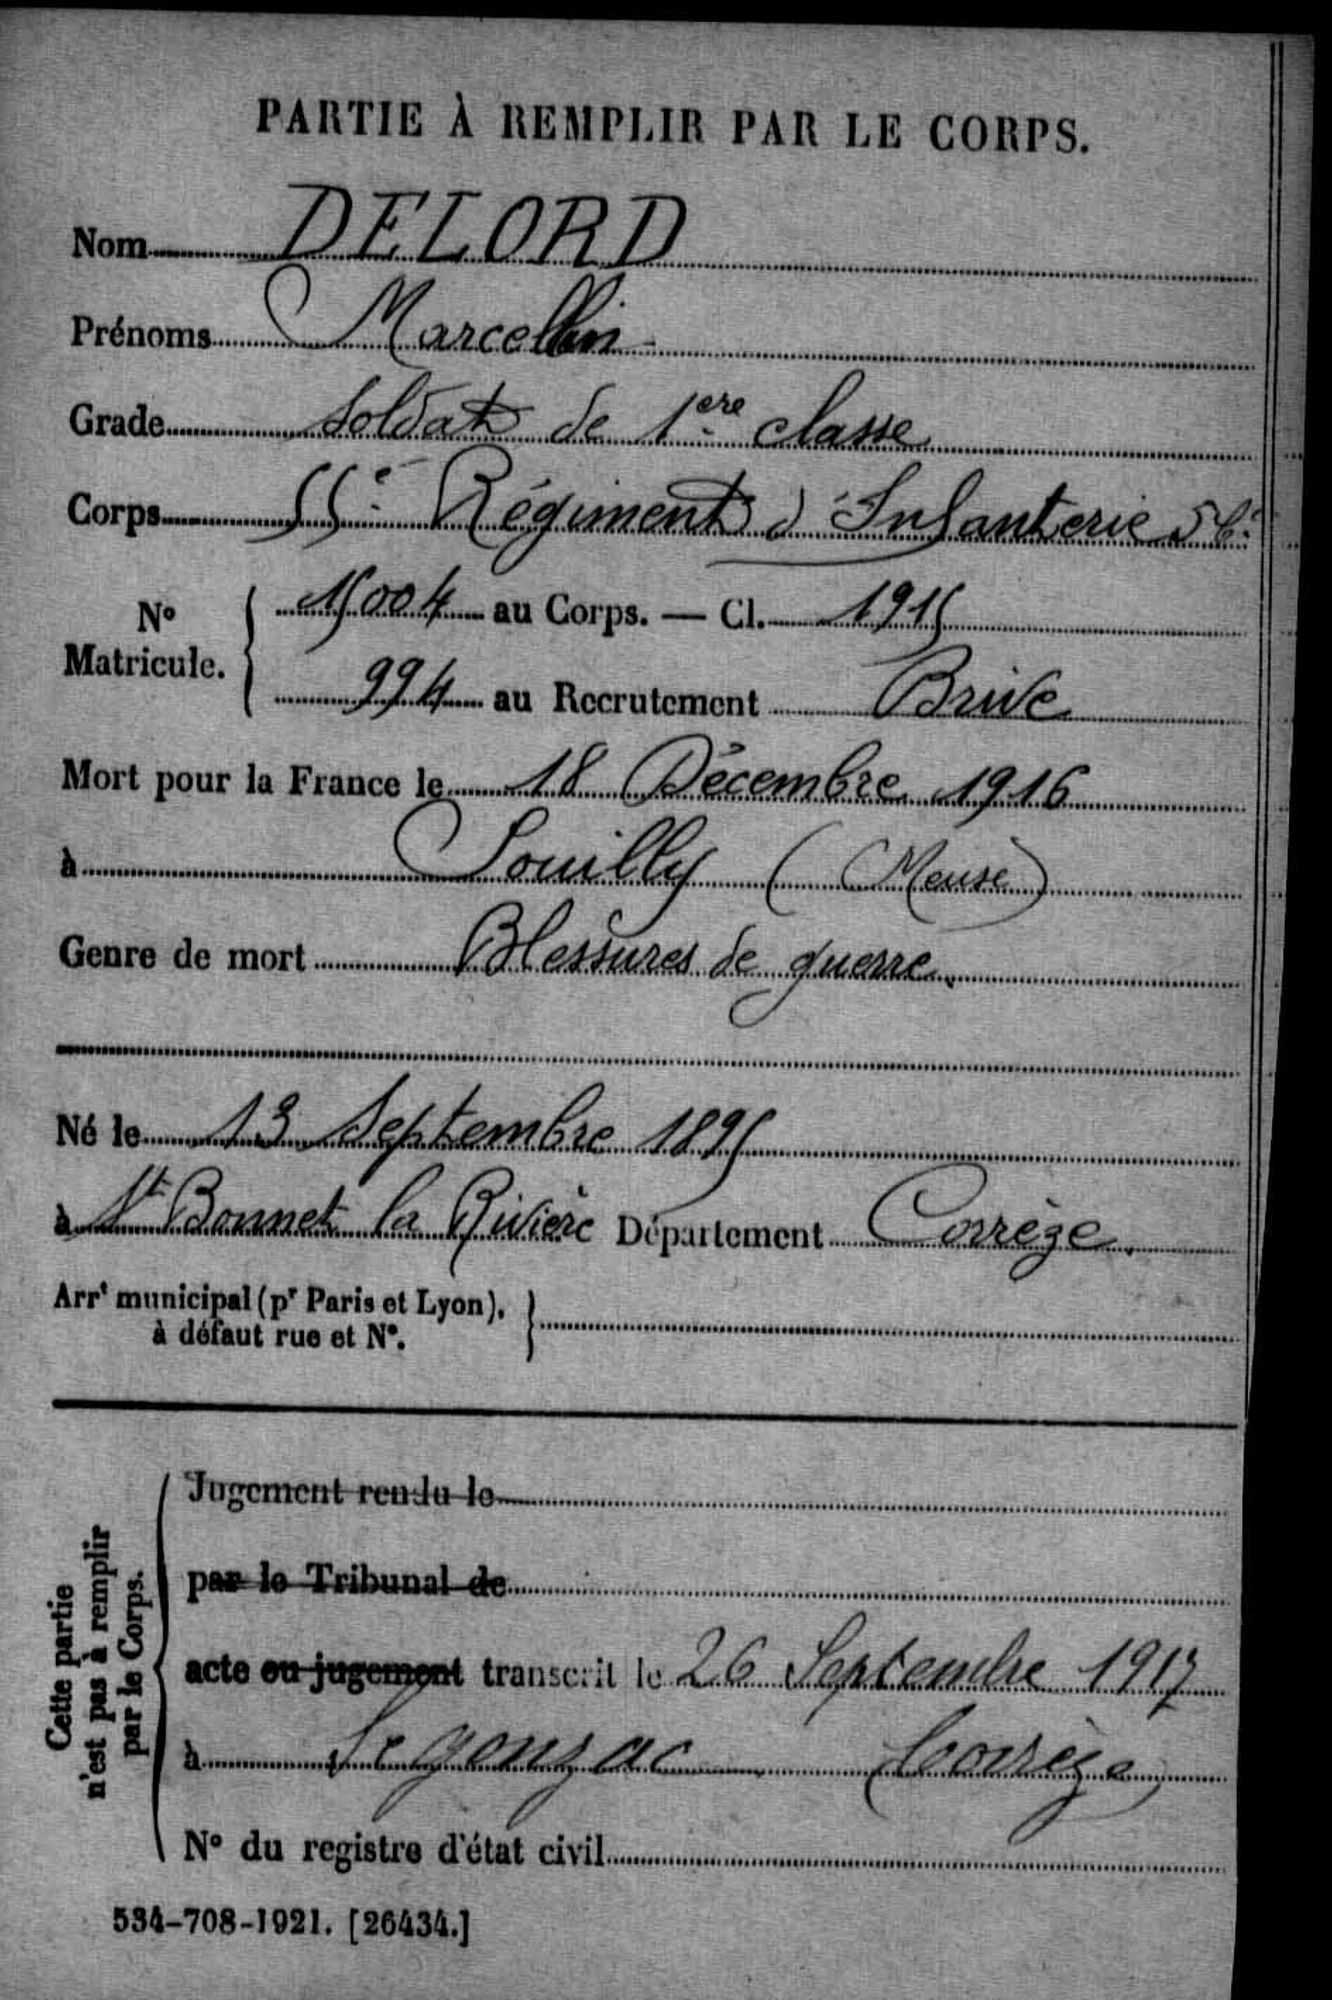 PARTIE À REMPLIR PAR LE CORPS.
Nom DELORD
Prénoms Marcellin
Grade Soldat de 1ère classe
Corps 55e Régiment d'Infanterie
N° Matricule. 15004 au Corps. — Cl. 1915
994 au Recrutement Brive
Mort pour la France le 18 Décembre 1916
à Souilly (Meuse)
Genre de mort Blessures de guerre
Né le 13 Septembre 1895
à St Bonnet la Rivière Département Corrèze
Arrt municipal (pr Paris et Lyon),
à défaut rue et N°.
Cette partie
n'est pas à remplir
par le Corps.
Jugement rendu le
par le Tribunal de
acte ou jugement transcrit le 26 Septembre 1917
à Segonzac Corrèze
N° du registre d'état civil
534-708-1921. [26434.]